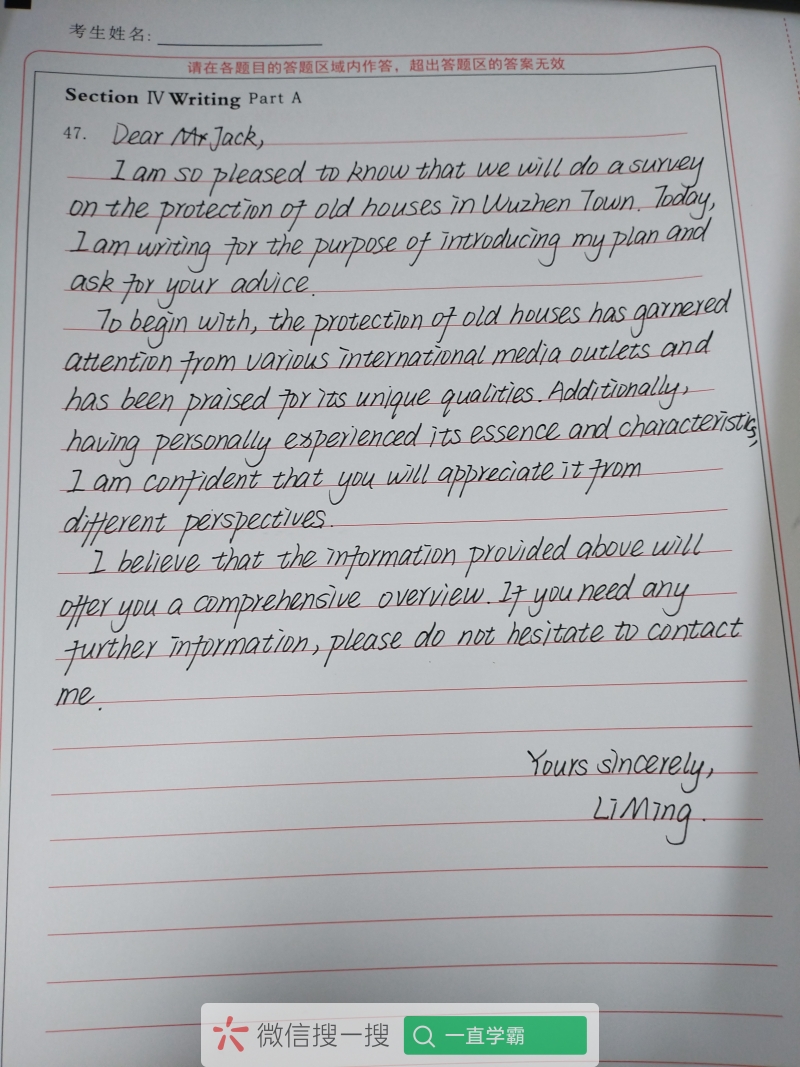 考生姓名:
请在各题目的答题区域内作答，超出答题区的答案无效
Section Ⅳ Writing Part A
47. Dear Mr Jack,
I am so pleased to know that we will do a survey
on the protection of old houses in Wuzhen Town. Today,
I am writing for the purpose of introducing my plan and
ask for your advice.
To begin with, the protection of old houses has garnered
attention from various international media outlets and
has been praised for its unique qualities. Additionally,
having personally experienced its essence and characteristics,
I am confident that you will appreciate it from
different perspectives.
I believe that the information provided above will
offer you a comprehensive overview. If you need any
further information, please do not hesitate to contact
me.
Yours sincerely,
Li Ming.
微信搜一搜 一直学霸